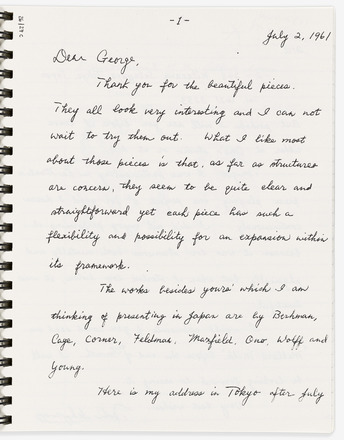 -1-
July 2, 1961
Dear George,
Thank you for the beautiful pieces.
They all look very interesting and I can not
wait to try them out. What I like most
about those pieces is that, as far as structures
are concern, they seem to be quite clear and
straightforward yet each piece has such a
flexibility and possibility for an expansion within
its framework.
The works besides yours which I am
thinking of presenting in Japan are by Berhman,
Cage, Corner, Feldman, Maxfield, Ono, Wolff and
Young.
Here is my address in Tokyo after July